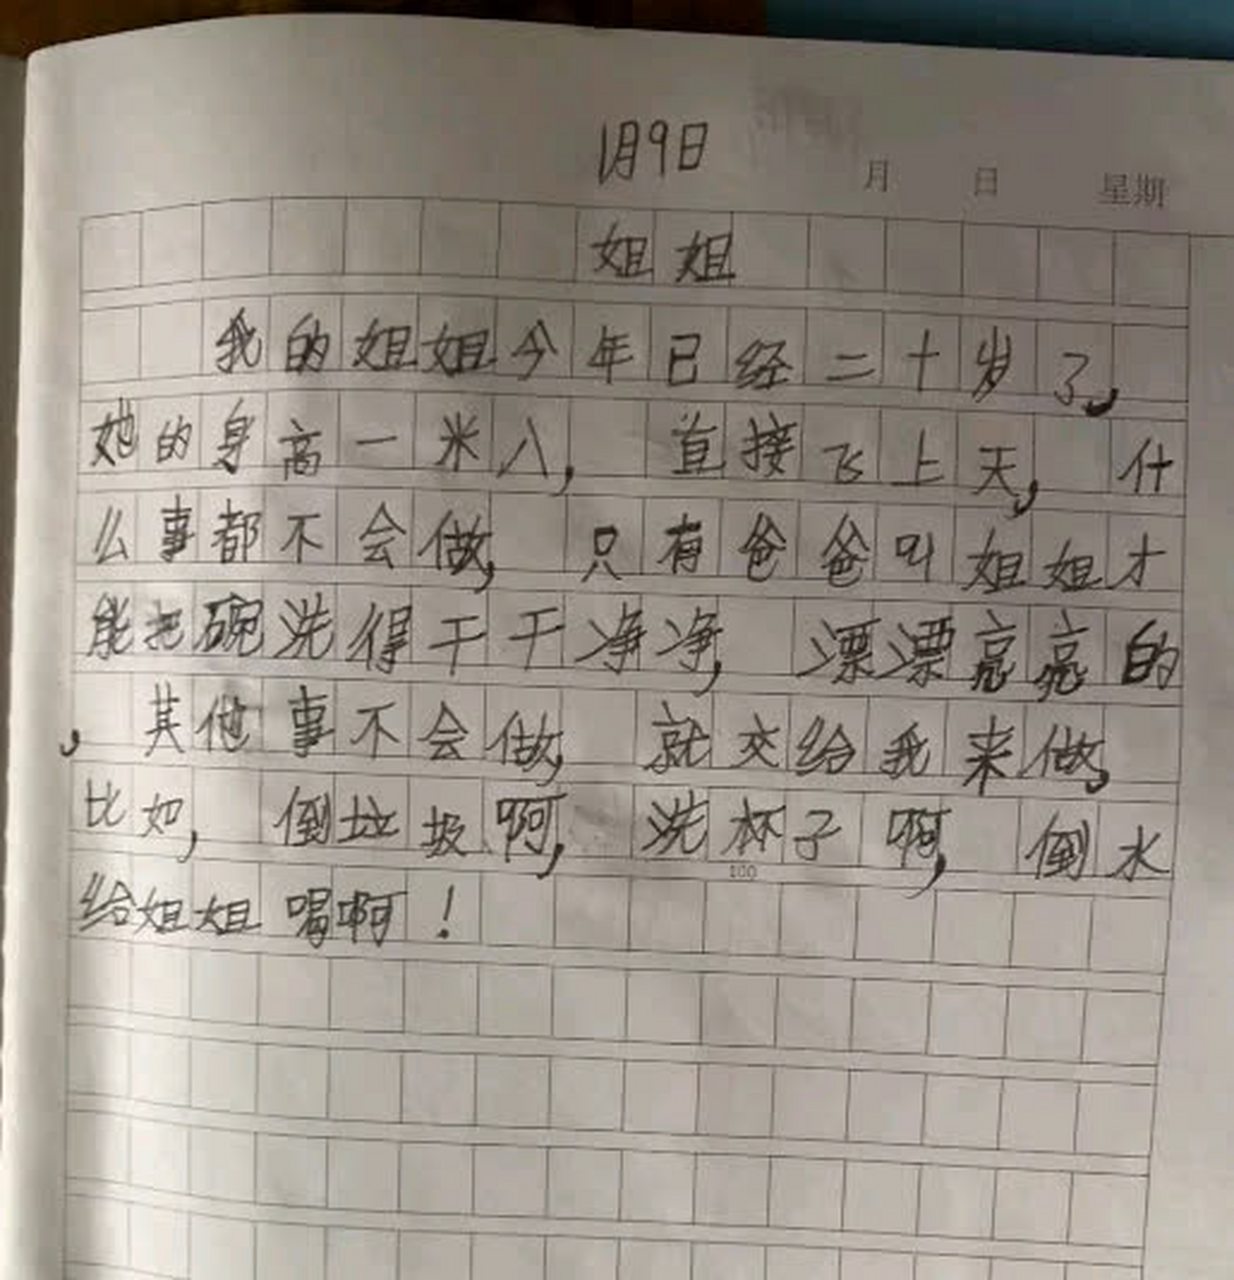 1月9日 月 日 星期
姐姐
我的姐姐今年已经二十岁了,
她的身高一米八,直接飞上天,什
么事都不会做,只有爸爸叫姐姐才
能把碗洗得干干净净,漂漂亮亮的
,其他事不会做,就交给我来做,
比如,倒垃圾啊,洗杯子啊,倒水
100
给姐姐喝啊!